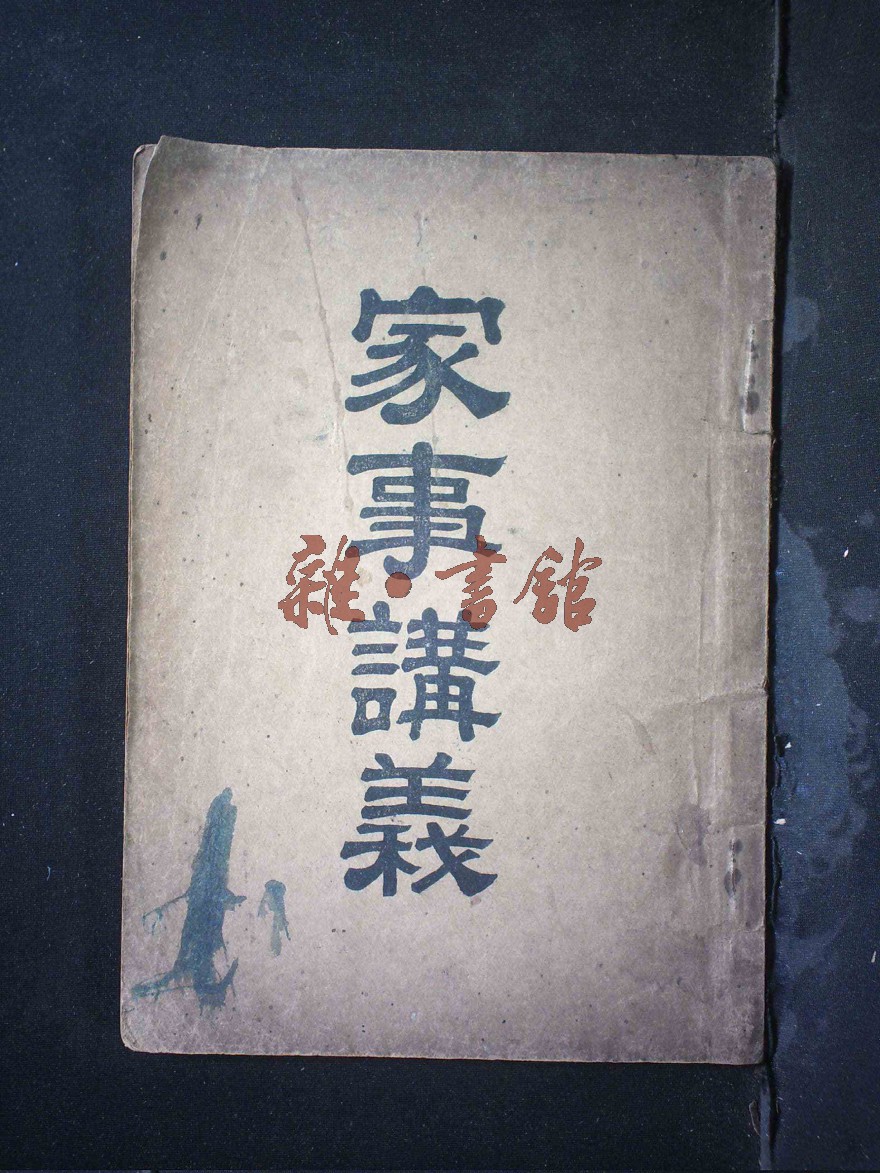 家事講義
雜·書館